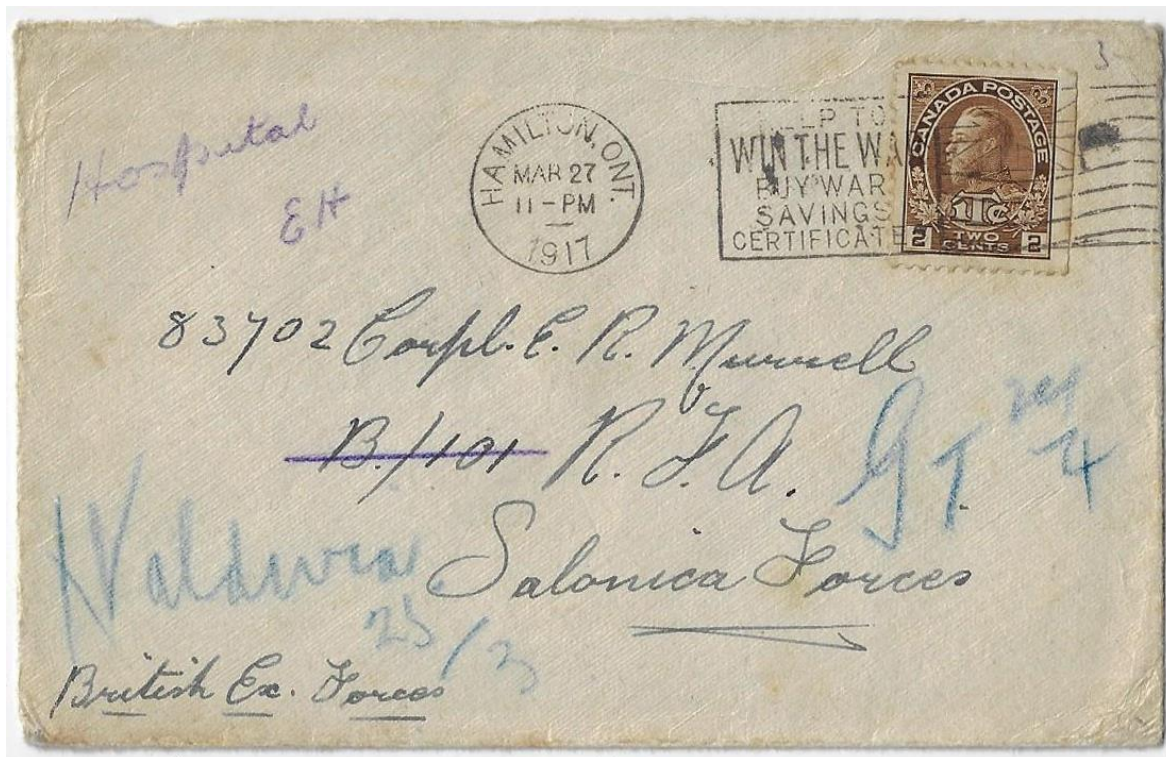 3
Hospital
EH
HAMILTON, ONT.
MAR 27
11 - PM
1917
HELP TO
WIN THE WA
BUY WAR
SAVINGS
CERTIFICATE
CANADA POSTAGE
1Tc
2 TWO CENTS 2
83702 Corpl. E. R. Murrell
B./101 R. F. A.
Salonica Forces
British Ex. Forces
25/3